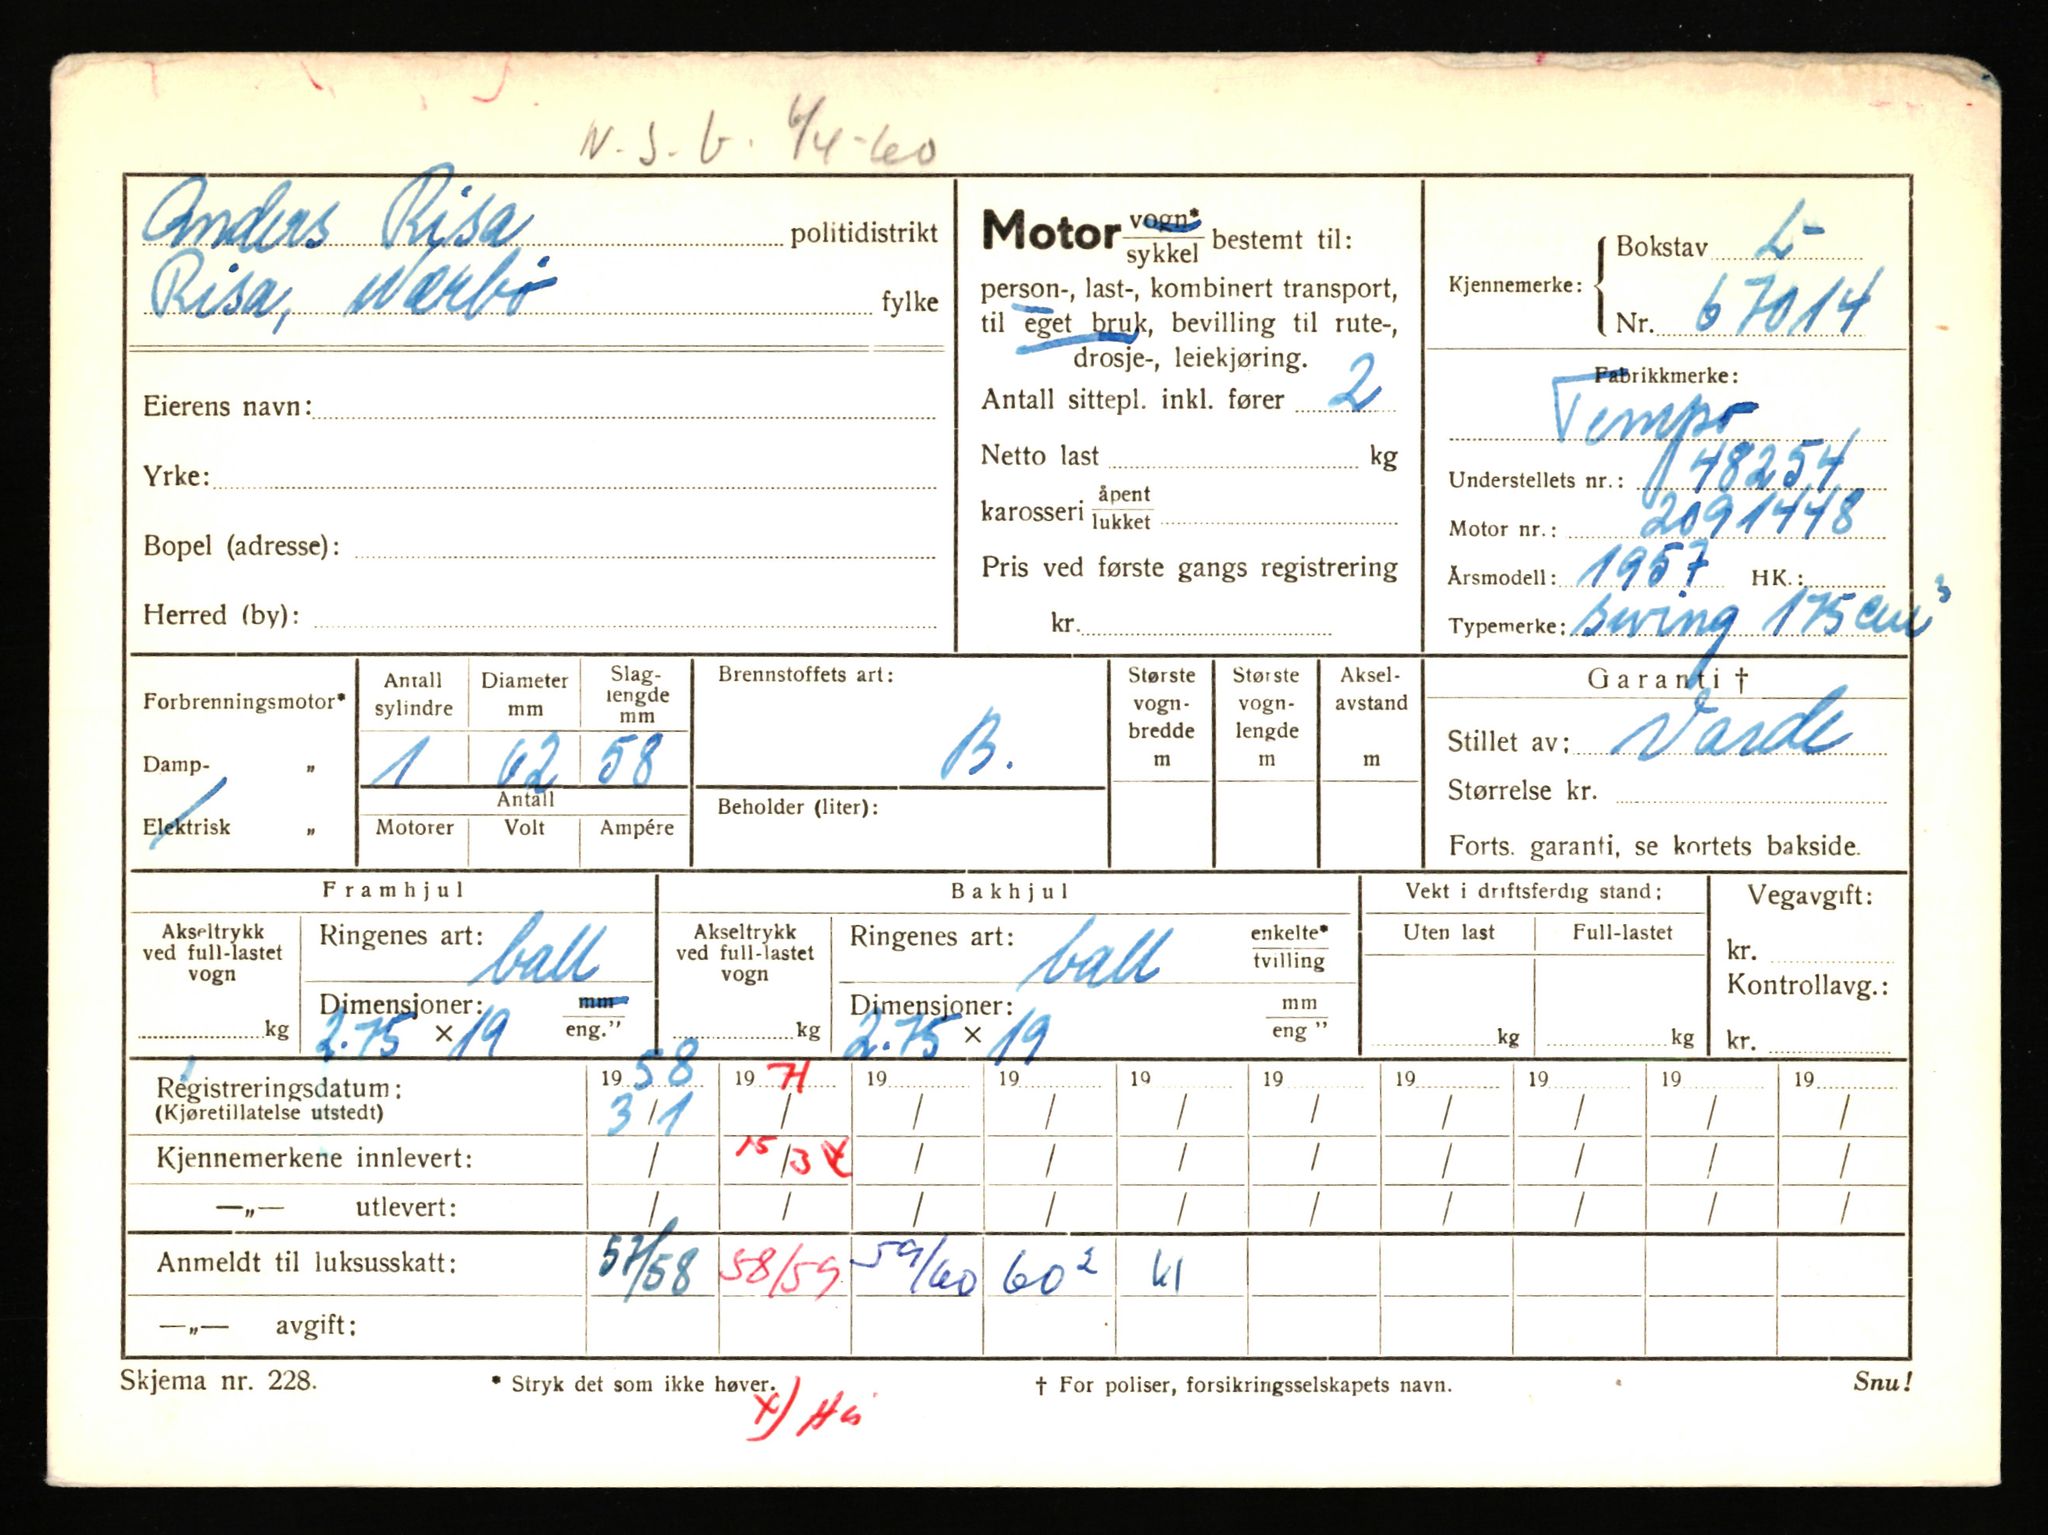 N. S. U. 4/4-60
Anders Risa politidistrikt
Risa, Nærbø fylke
Eierens navn:
Yrke:
Bopel (adresse):
Herred (by):
Motor vogn* / sykkel bestemt til:
person-, last-, kombinert transport,
til eget bruk, bevilling til rute-,
drosje-, leiekjøring.
Antall sittepl. inkl. fører 2
Netto last kg
karosseri åpent / lukket
Pris ved første gangs registrering
kr.
Kjennemerke: Bokstav L-
Nr. 67014
Fabrikkmerke:
Tempo
Understellets nr.: 148254
Motor nr.: 2091448
Årsmodell: 1957 HK.:
Typemerke: swing 175 cm³
Forbrenningsmotor*
Damp- „
Elektrisk „
Antall sylindre Diameter mm Slag-lengde mm
1 62 58
Antall
Motorer Volt Ampére
Brennstoffets art:
B.
Beholder (liter):
Største vogn-bredde m
Største vogn-lengde m
Aksel-avstand m
Garanti †
Stillet av: Varde
Størrelse kr.
Forts. garanti, se kortets bakside.
Framhjul
Akseltrykk ved full-lastet vogn
kg
Ringenes art: ball
Dimensjoner: mm / eng."
2.75 × 19
Bakhjul
Akseltrykk ved full-lastet vogn
kg
Ringenes art: ball enkelte* / tvilling
Dimensjoner: mm / eng"
2.75 × 19
Vekt i driftsferdig stand:
Uten last Full-lastet
kg kg
Vegavgift:
kr.
Kontrollavg.:
kr.
Registreringsdatum: 1958 1971 19 19 19 19 19 19 19 19
(Kjøretillatelse utstedt) 3/1 / / / / / / / / /
Kjennemerkene innlevert: / 15/3 x / / / / / / / /
—„— utlevert: / / / / / / / / / /
Anmeldt til luksusskatt: 57/58 58/59 59/60 60² 61
—„— avgift:
Skjema nr. 228.
* Stryk det som ikke høver.
† For poliser, forsikringsselskapets navn.
Snu!
x)